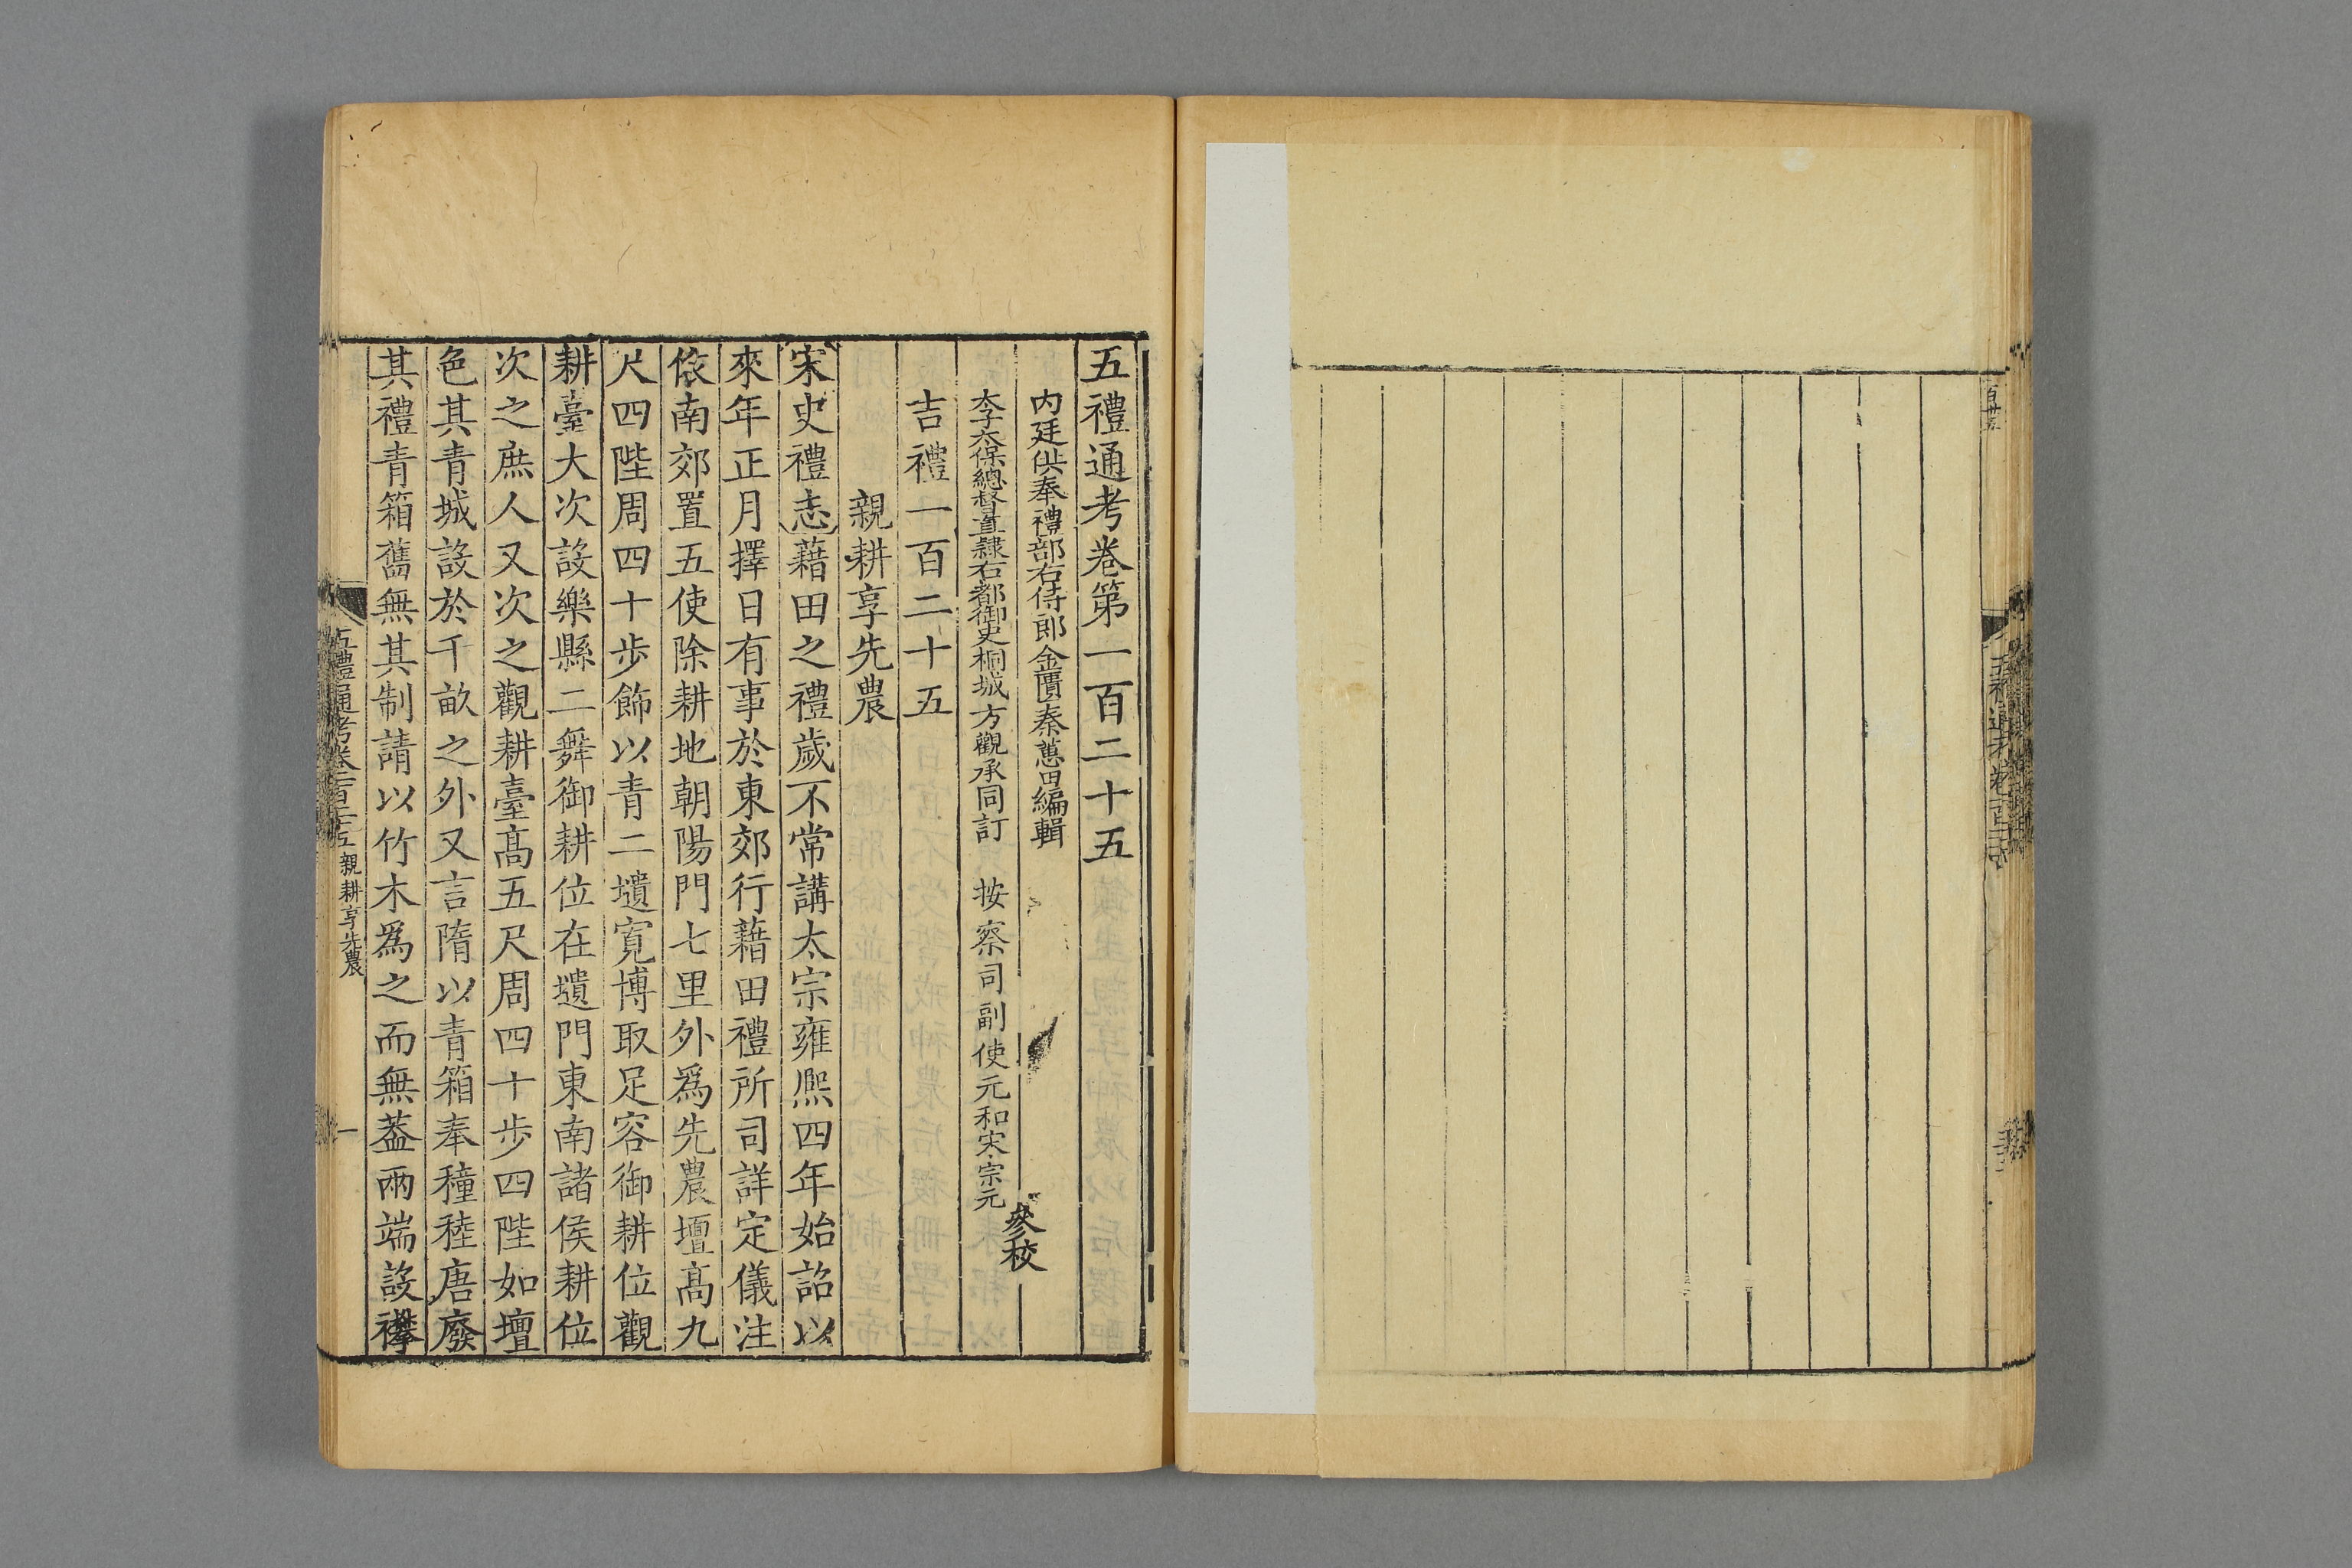 五禮通考卷第一百二十五
内廷供奉禮部右侍郎金匱秦蕙田編輯
太子太保總督直隷右都御史桐城方觀承同訂 按察司副使元和宋宗元
參校
吉禮一百二十五
親耕享先農
宋史禮志藉田之禮歲不常講太宗雍熈四年始詔以
來年正月擇日有事於東郊行藉田禮所司詳定儀注
依南郊置五使除耕地朝陽門七里外爲先農壇高九
尺四陛周四十步飾以青二壝寛博取足容御耕位觀
耕臺大次設樂縣二舞御耕位在壝門東南諸侯耕位
次之庶人又次之觀耕臺高五尺周四十步四陛如壇
色其青城設於千畝之外又言隋以青箱奉穜稑唐廢
其禮青箱舊無其制請以竹木爲之而無葢兩端設襻
五禮通考卷一百二十五 親耕享先農
一